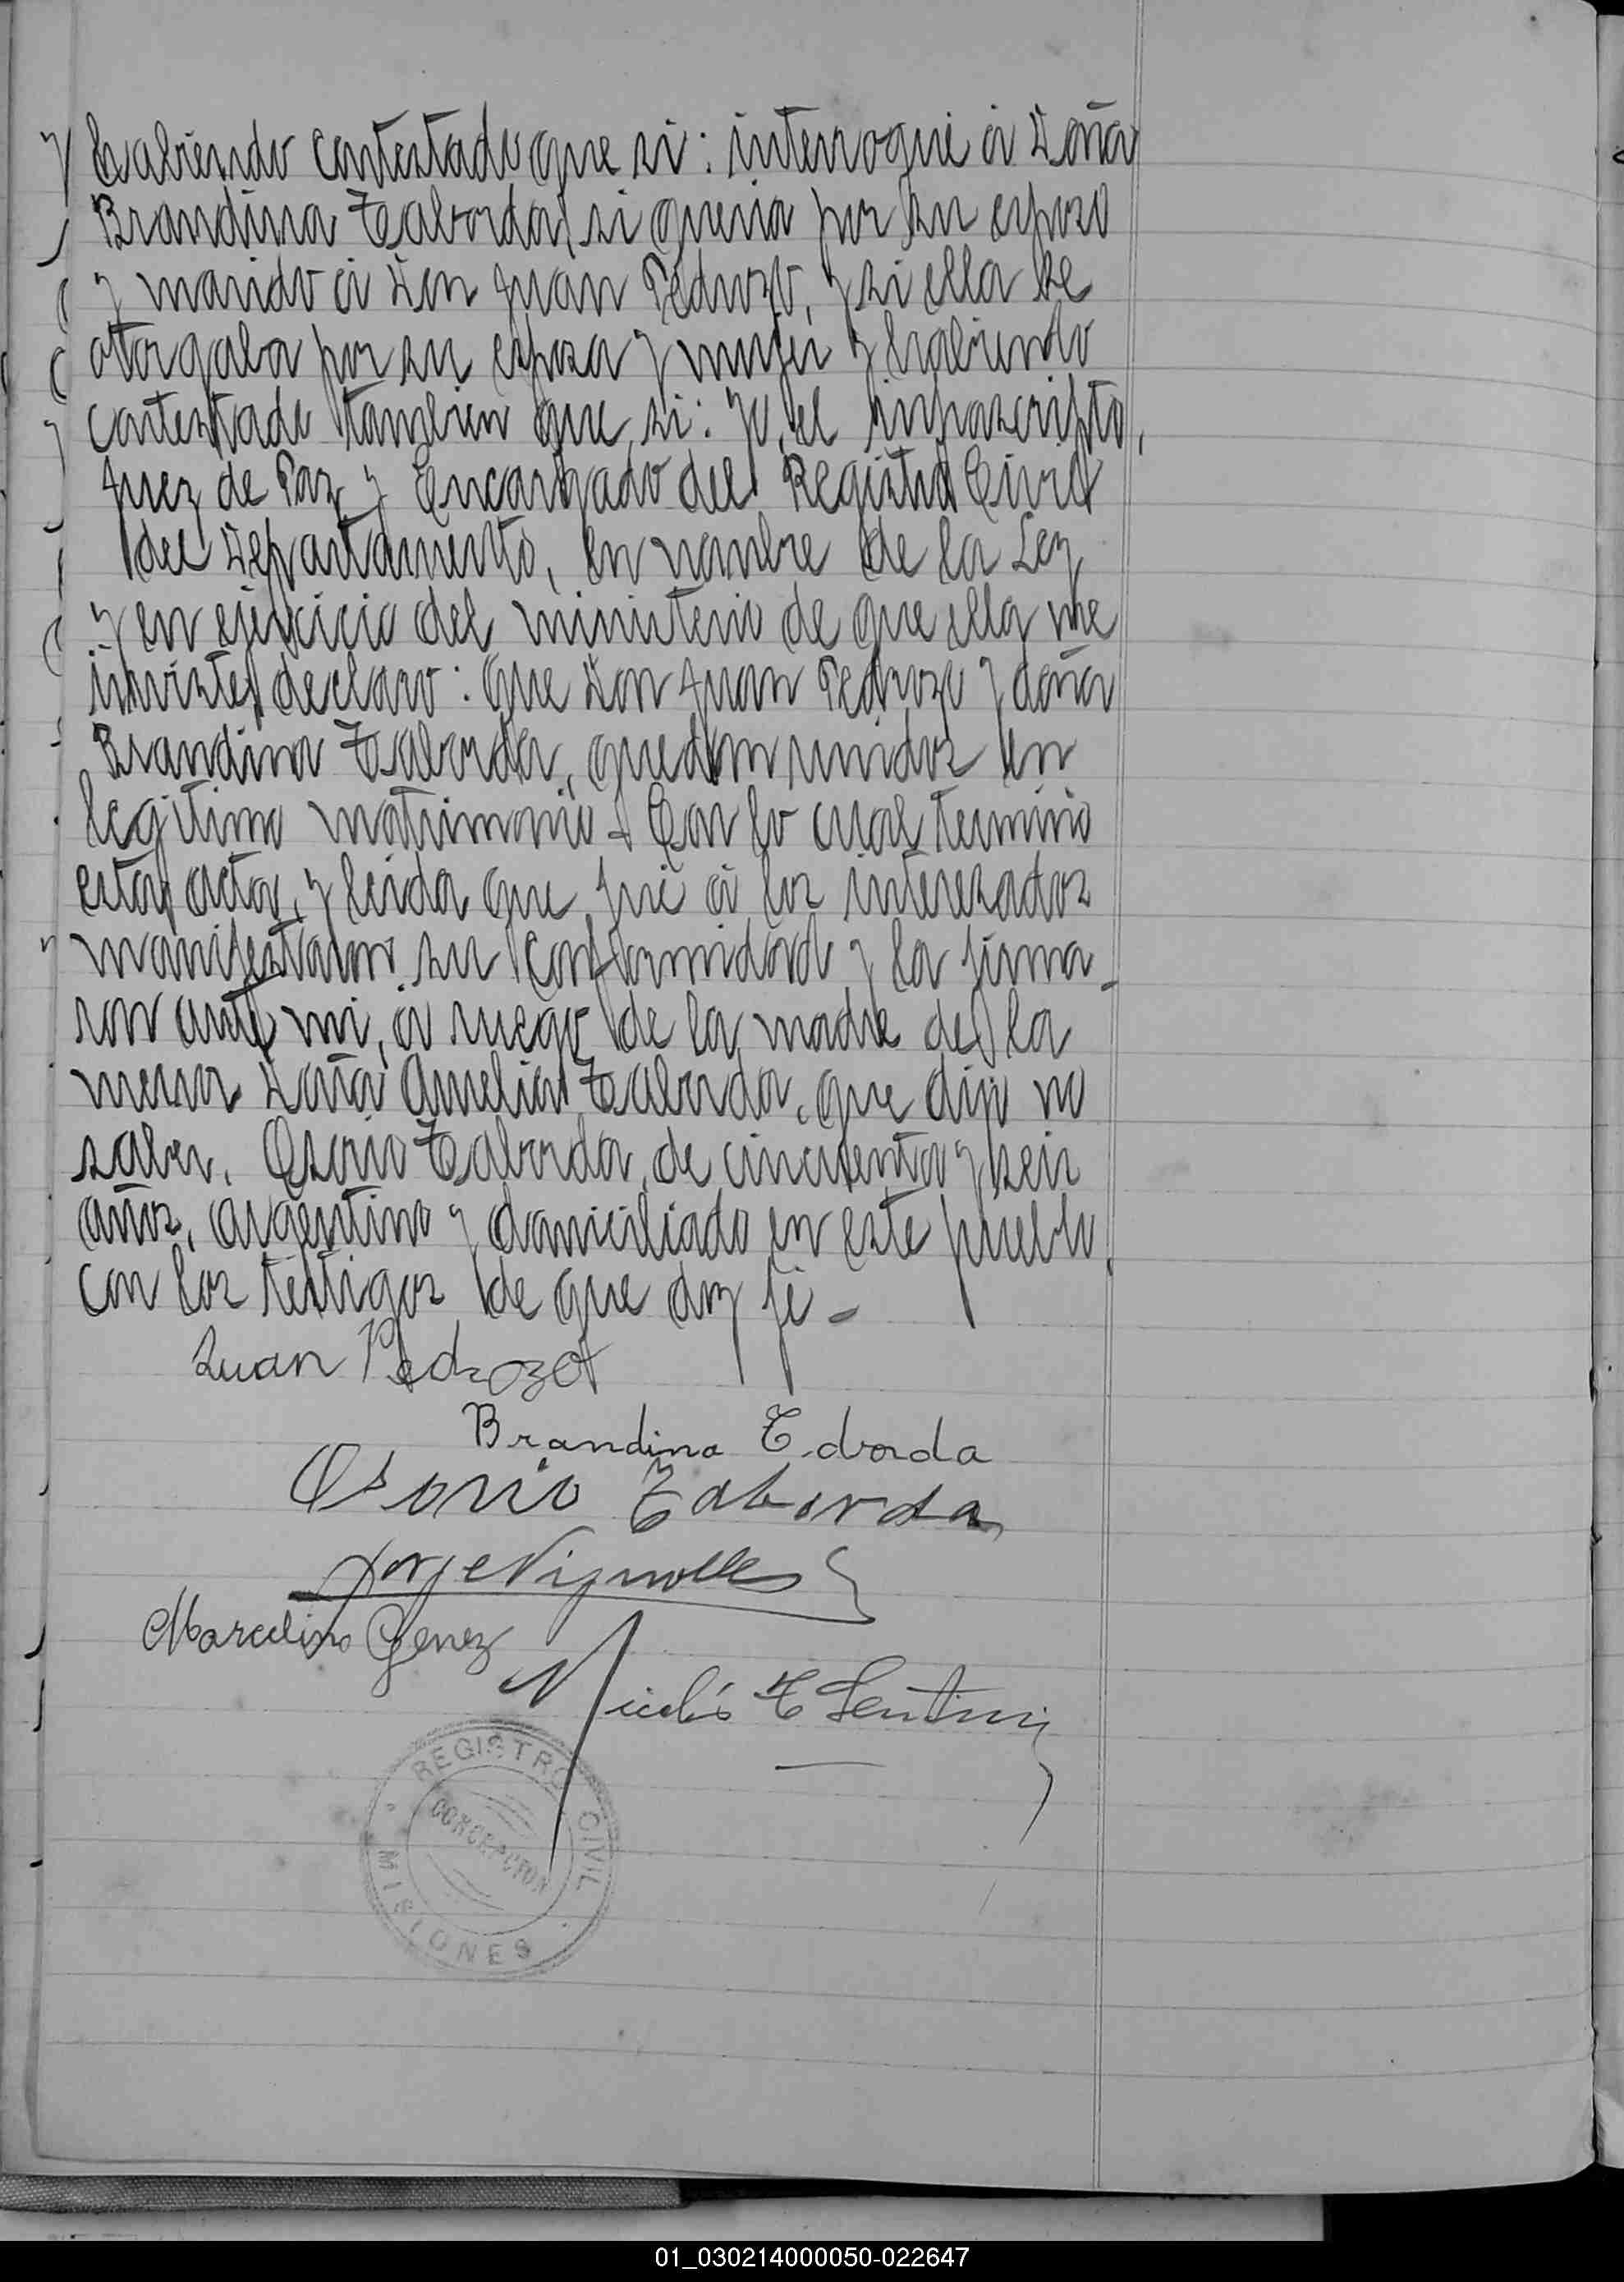 habiendo contestado que si: interrogué á Doña
Brandina Taborda, si queria por su esposo
y marido á Don Juan Pedrozo, y si ella se
otorgaba por su esposa y mujer y habiendo
contestado tambien que si: Yo, el infrascripto,
Juez de Paz y Encargado del Registro Civil
del Departamento, en nombre de la Ley
y en ejercicio del ministerio de que ella me
inviste, declaro: Que Don Juan Pedrozo y doña
Brandina Taborda, quedan unidos en
legitimo matrimonio - Con lo cual terminó
esta acta, y leida que fué á los interesados
manifestaron su conformidad y la firma-
ron ante mi, á ruego de la madre de la
menor Doña Amelia Taborda, que dijo no
saber, Osorio Taborda, de cincuenta y seis
años, argentino y domiciliado en este pueblo,
con los testigos de que doy fé -
Juan Pedrozo
Brandina Tdborda
Osorio Taborda
Jorge Vignolles
Marcelino Genez
Nicolás T
REGISTRO CIVIL
CONCEPCION
MISIONES
01_030214000050-022647